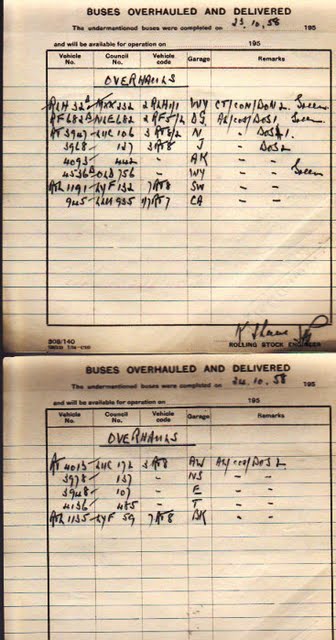 BUSES OVERHAULED AND DELIVERED
The undermentioned buses were completed on 23.10.58 195
and will be available for operation on 195
Vehicle No. Council No. Vehicle code Garage Remarks
OVERHAULS
RLH 32 MXX 232 2RLH1/1 WY CT/CON/DON 2. Green
RF 682 NLE 682 2RF2/2 DG Green
RT 3947 LUC 106 3RT8/2 N " DOS1.
3968 127 3RT8 J " DOS2
4093 442 " AK " "
4536 OLD 756 " WY " " Green
RTL 1191 LYF 132 7RT8 SW " "
945 LUC 935 7RT7 CA " "
SOB/140
ROLLING STOCK ENGINEER
BUSES OVERHAULED AND DELIVERED
The undermentioned buses were completed on 24.10.58 195
and will be available for operation on 195
Vehicle No. Council No. Vehicle code Garage Remarks
OVERHAULS
RT 4013 LUC 172 3RT8 AW
3978 137 " NS " "
3948 107 " E " "
4136 485 " T " "
RTL 1135 LYF 59 7RT8 BK " "